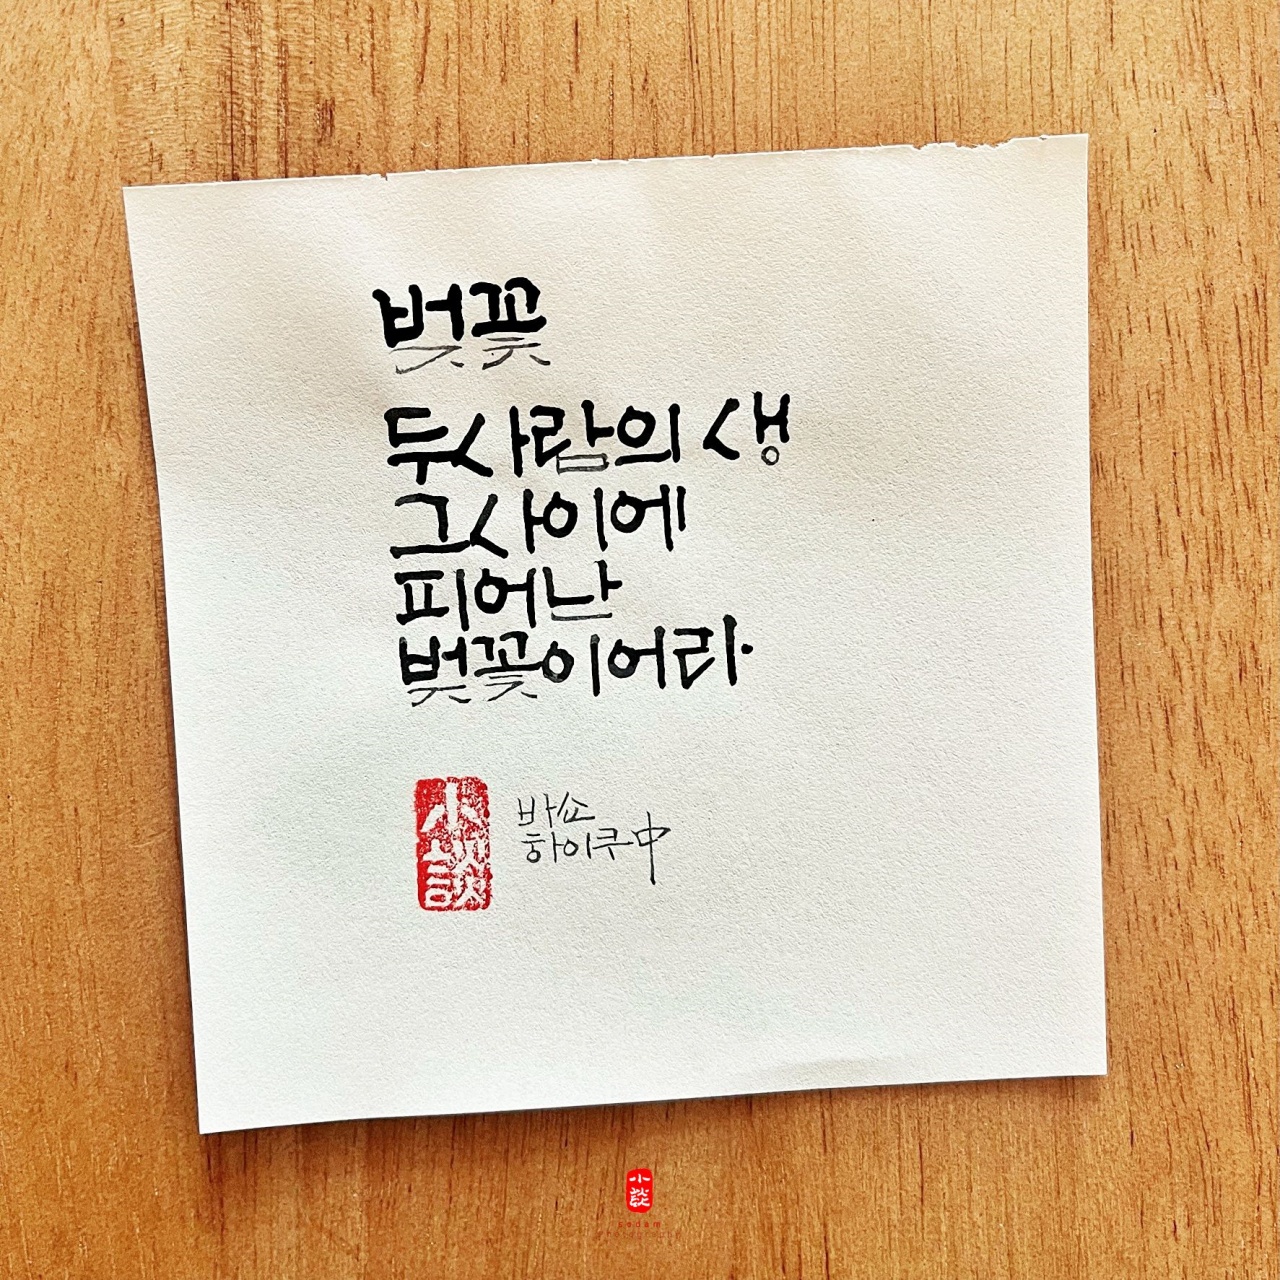 벚꽃
두사람의 생
그사이에
피어난
벚꽃이어라.
小談
바쇼
하이쿠中
小談
sodam